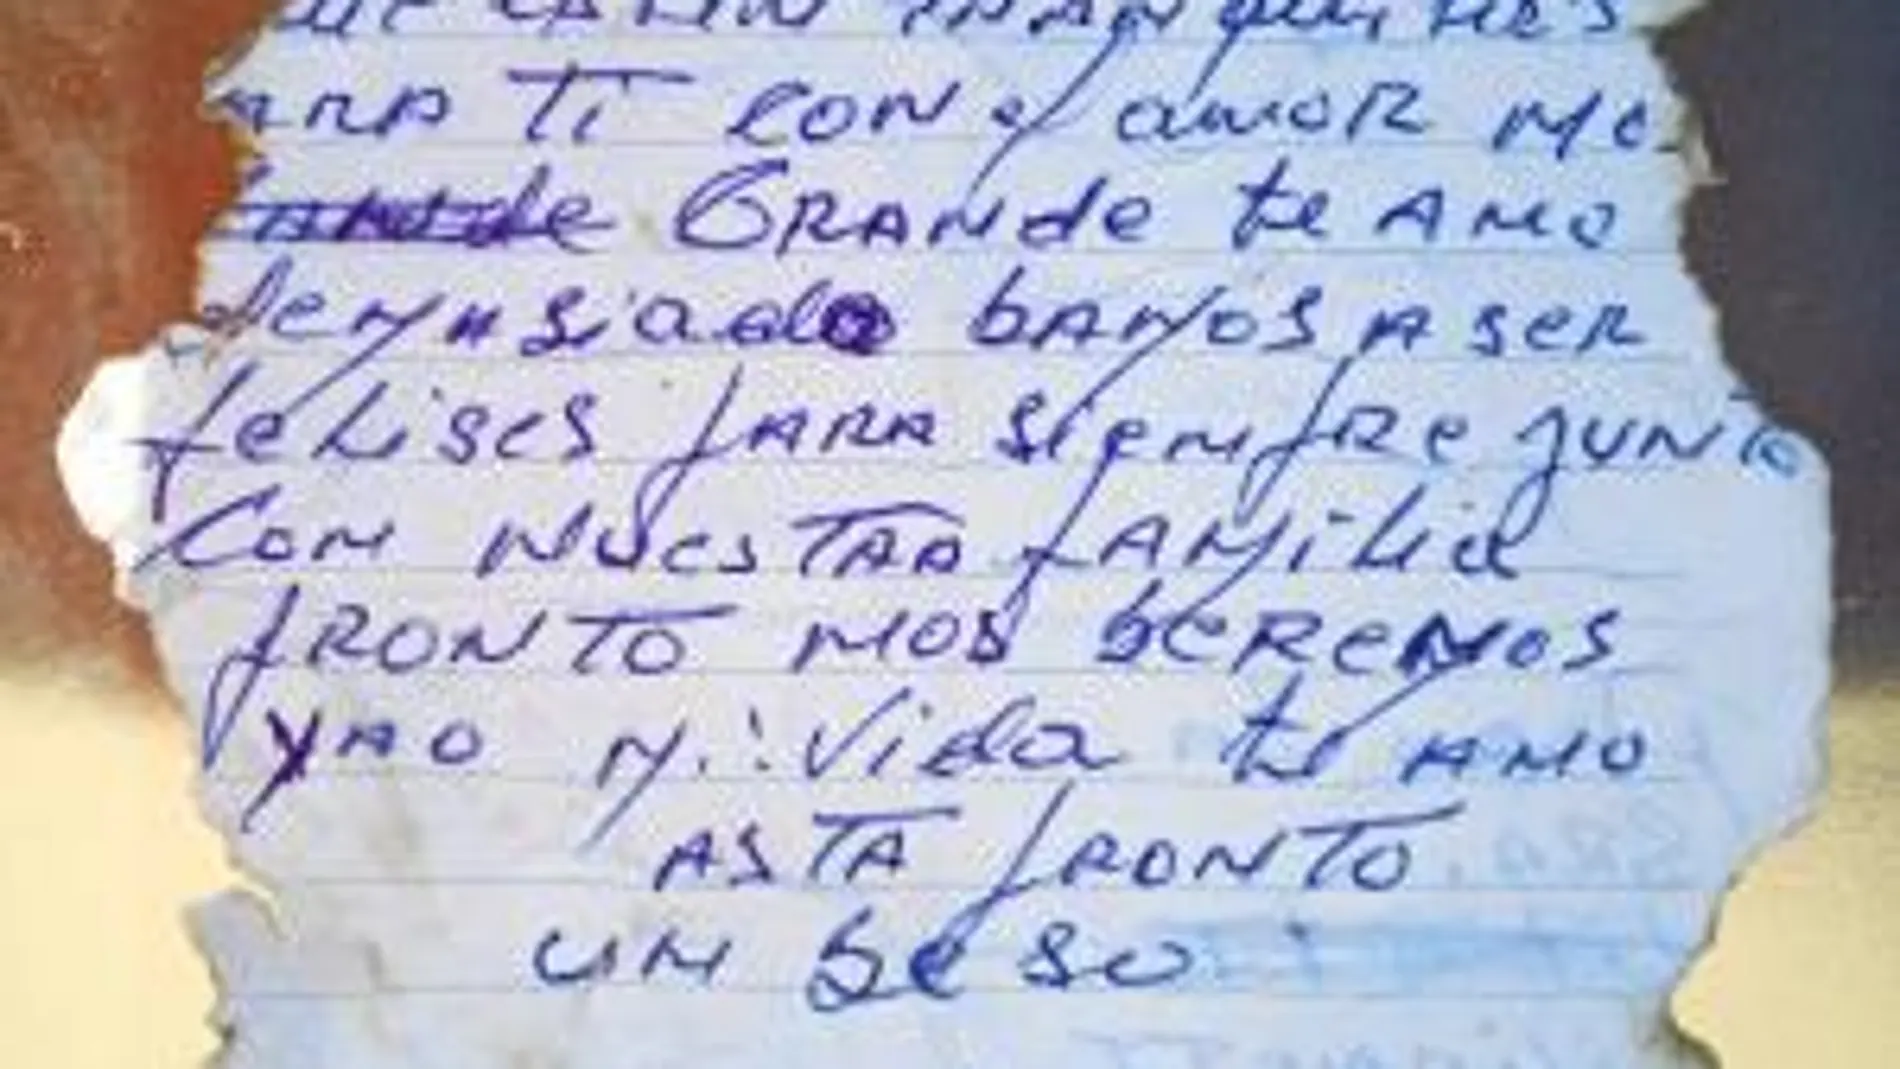 TRANQUILITES
ARA TI CON el amor MO
GRANde te AMO
demasiado bAMOS A seR
feLises pARA siempRe JUNTO
CON NUesTRA fAMiLia
pRONTO NOS beREMOS
Mi Vida te AMO
ASTA pRONTO.
UN beso